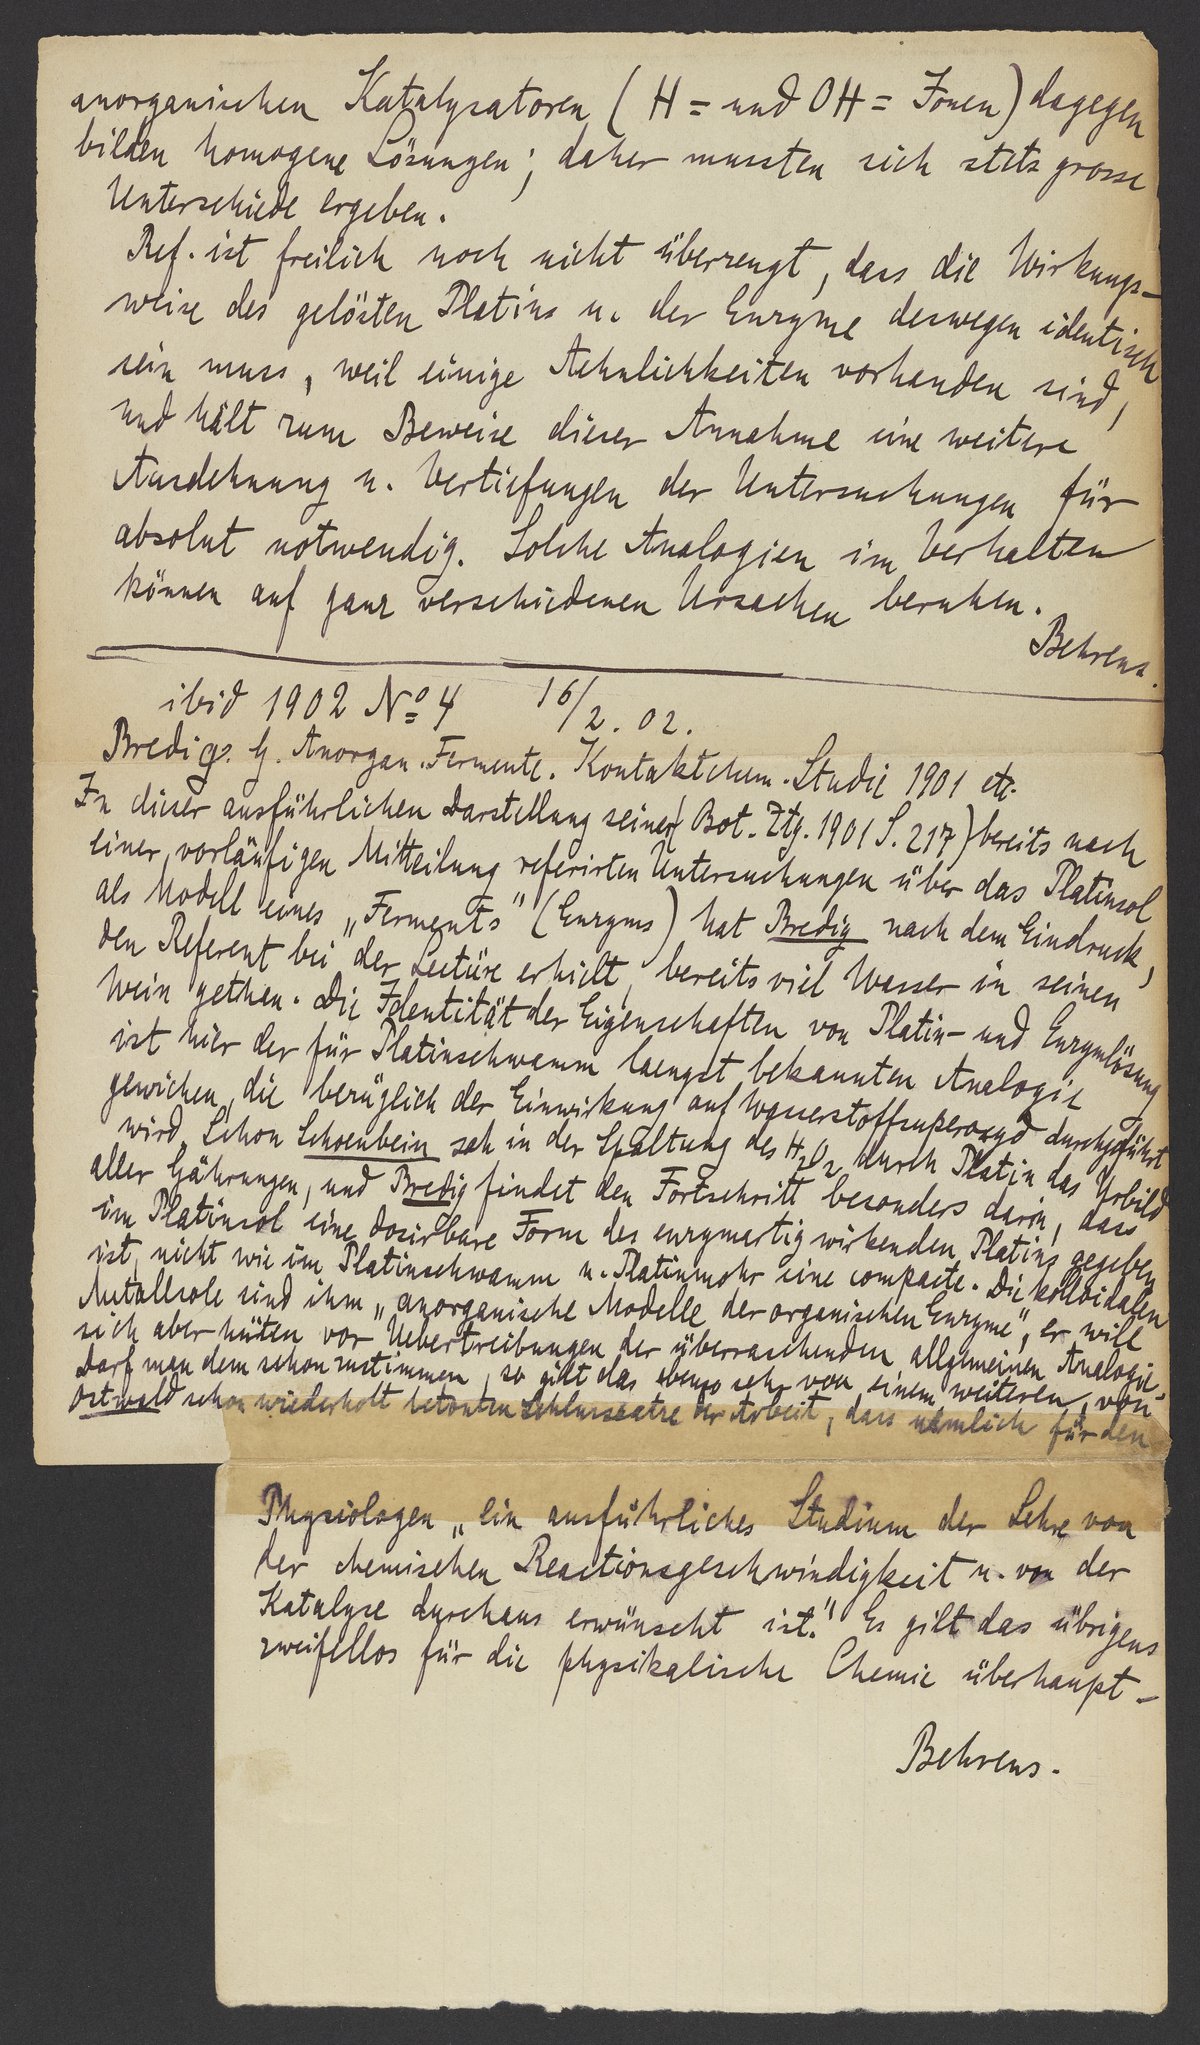 anorganischen Katalysatoren (H = und OH = Ionen) dagegen
bilden homogene Lösungen; daher mussten sich stets grosse
Unterschiede ergeben.
Ref. ist freilich noch nicht überzeugt, dass die Wirkungs-
weise des gelösten Platins u. der Enzyme deswegen identisch
sein muss, weil einige Aehnlichkeiten vorhanden sind,
und hält zum Beweise dieser Annahme eine weitere
Ausdehnung u. Vertiefungen der Untersuchungen für
absolut notwendig. Solche Analogien im Verhalten
können auf ganz verschiedenen Ursachen beruhen.
Behrens.
ibid 1902 No 4 16/2. 02.
Bredig. G. Anorgan. Fermente. Kontaktchem. Studie 1901 etc.
In dieser ausführlichen Darstellung seiner (Bot. Ztg. 1901 S. 217) bereits nach
einer vorläufigen Mitteilung referirten Untersuchungen über das Platinsol
als Modell eines „Ferments" (Enzyms) hat Bredig nach dem Eindruck,
den Referent bei der Lectüre erhielt, bereits viel Wasser in seinen
Wein gethan. Die Identität der Eigenschaften von Platin- und Enzymlösung
ist hier der für Platinschwamm laengst bekannten Analogie
gewichen, die bezüglich der Einwirkung auf Wasserstoffsuperoxyd durchgeführt
wird. Schon Schoenbein sah in der Spaltung des H2O2 durch Platin das Urbild
aller Gährungen, und Bredig findet den Fortschritt besonders darin, dass
im Platinsol eine dosirbare Form des enzymartig wirkenden Platins gegeben
ist, nicht wie im Platinschwamm u. Platinmohr eine compacte. Die kolloidalen
Metallsole sind ihm „anorganische Modelle der organischen Enzyme", er will
sich aber hüten vor Uebertreibungen der überraschenden allgemeinen Analogie.
Darf man dem schon zustimmen, so gilt das ebenso sehr von einem weiteren, von
Ostwald schon wiederholt betonten Schlusssatze der Arbeit, dass nämlich für den
Physiologen „ein ausführliches Studium der Lehre von
der chemischen Reactionsgeschwindigkeit u. von der
Katalyse durchaus erwünscht ist." Es gilt das übrigens
zweifellos für die physikalische Chemie überhaupt -
Behrens.